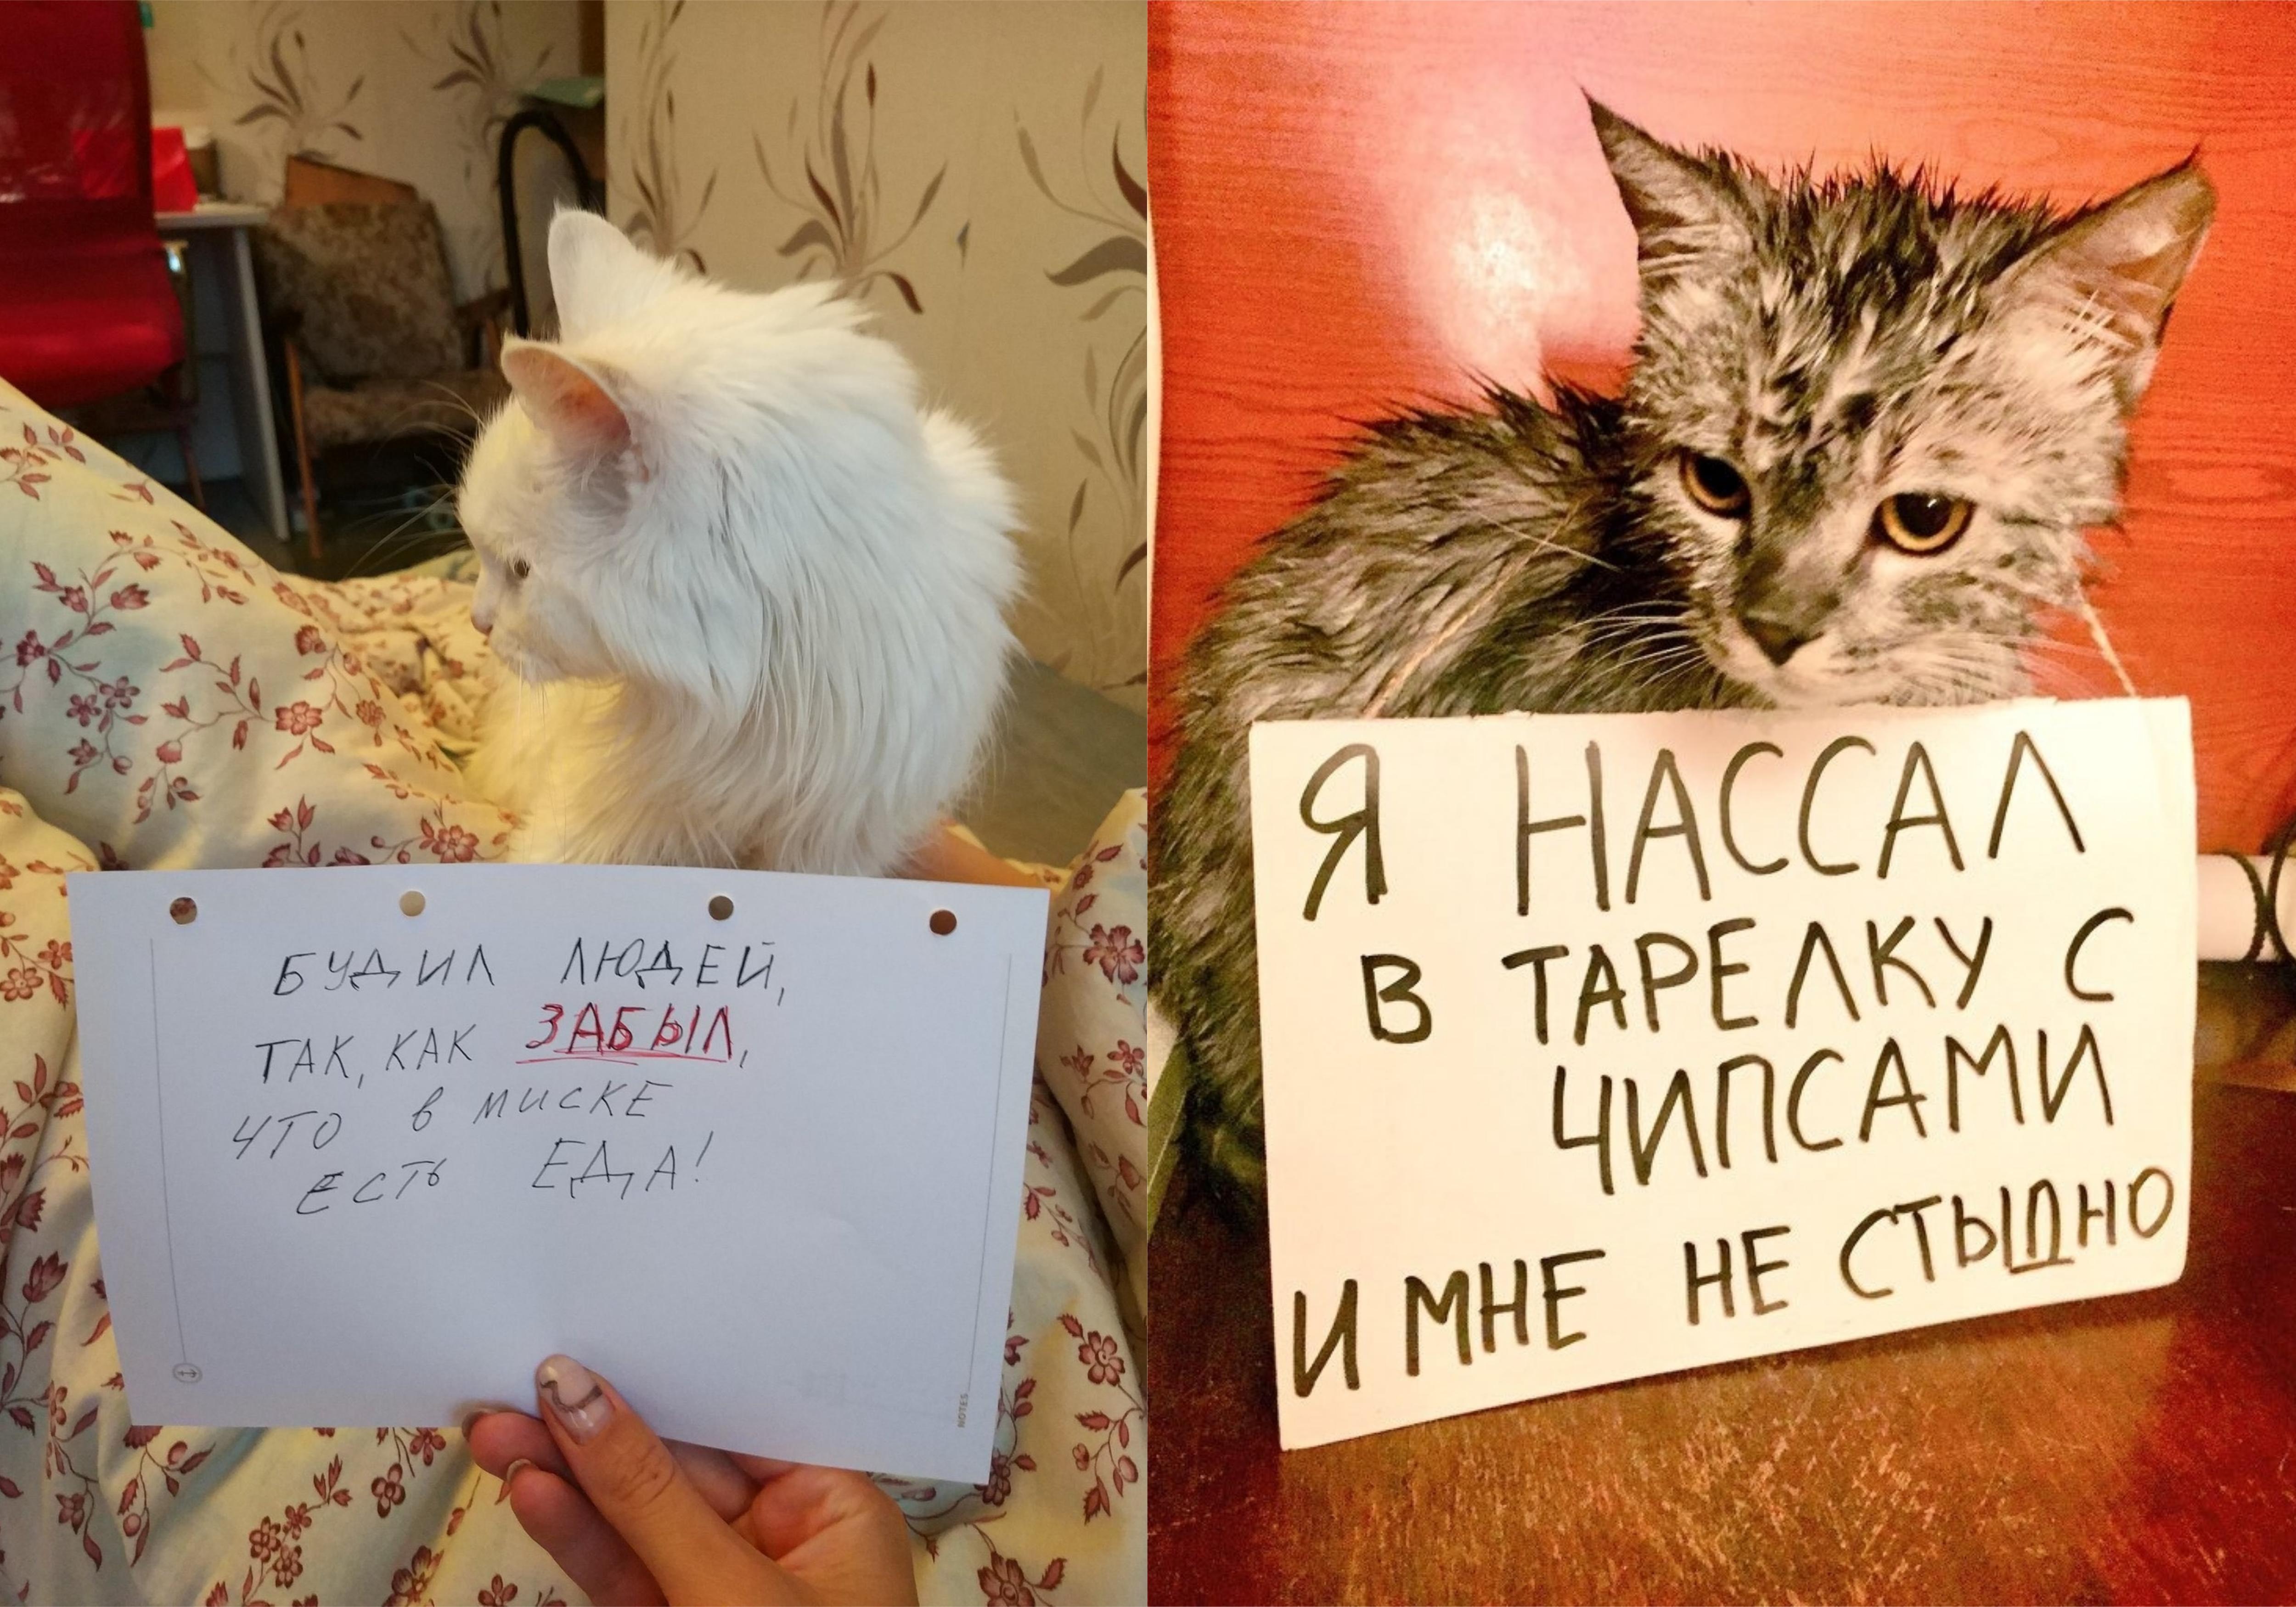 БУДИЛ ЛЮДЕЙ,
ТАК, КАК ЗАБЫЛ,
ЧТО В МИСКЕ
ЕСТЬ ЕДА!
NOTES
Я НАССАЛ
В ТАРЕЛКУ С
ЧИПСАМИ
И МНЕ НЕ СТЫДНО